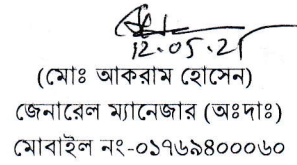 12.05.21
(মোঃ আকরাম হোসেন)
জেনারেল ম্যানেজার (অঃদাঃ)
মোবাইল নং-০১৭৬৯৪০০০৬০